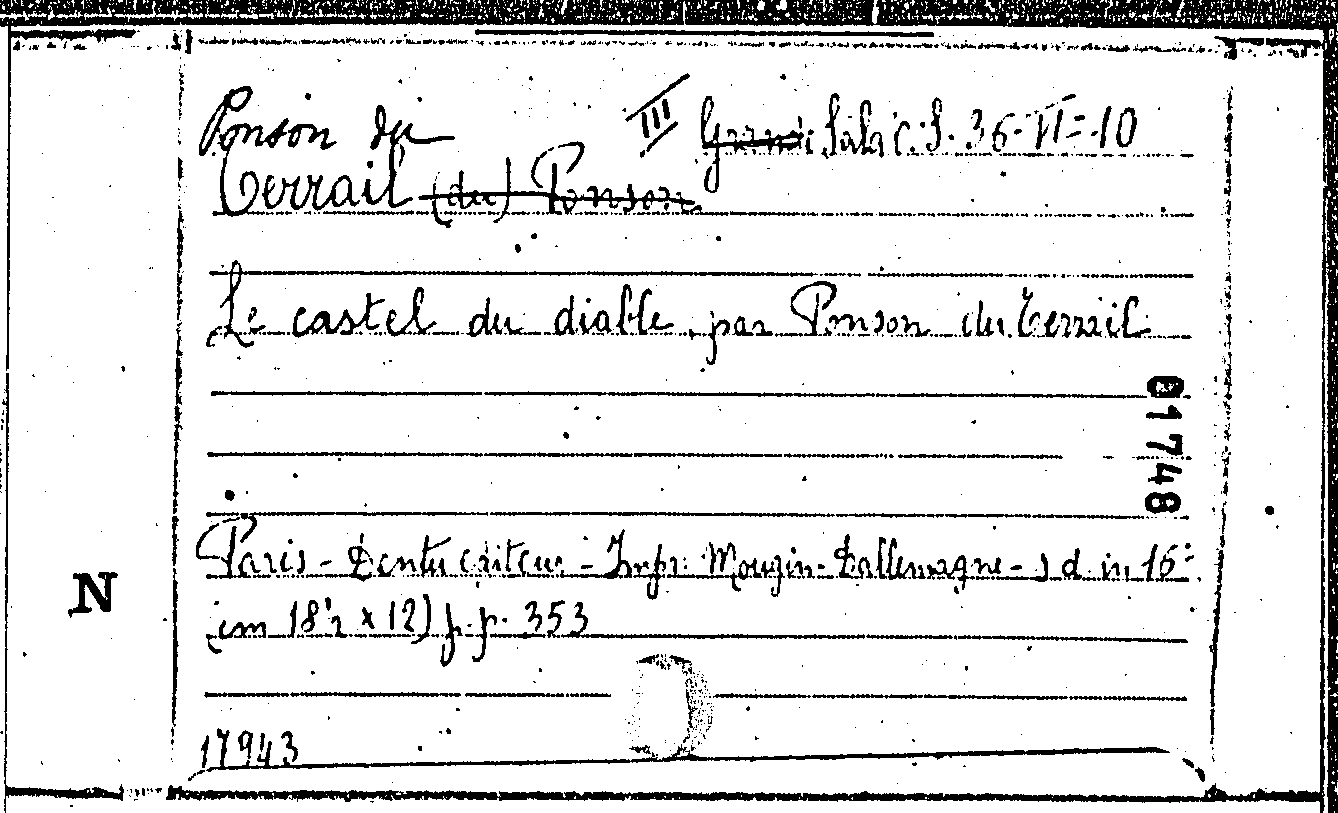 Ponson du III Sala C. S. 36-VI=-10
Terrail (du) Ponson
Le castel du diable, par Ponson du Terrail
01748
Paris - Dentu editeur - Impr. Mougin-Dallemagne - s d in 16º
N
(cm 18½ x 12) p.p. 353
17943